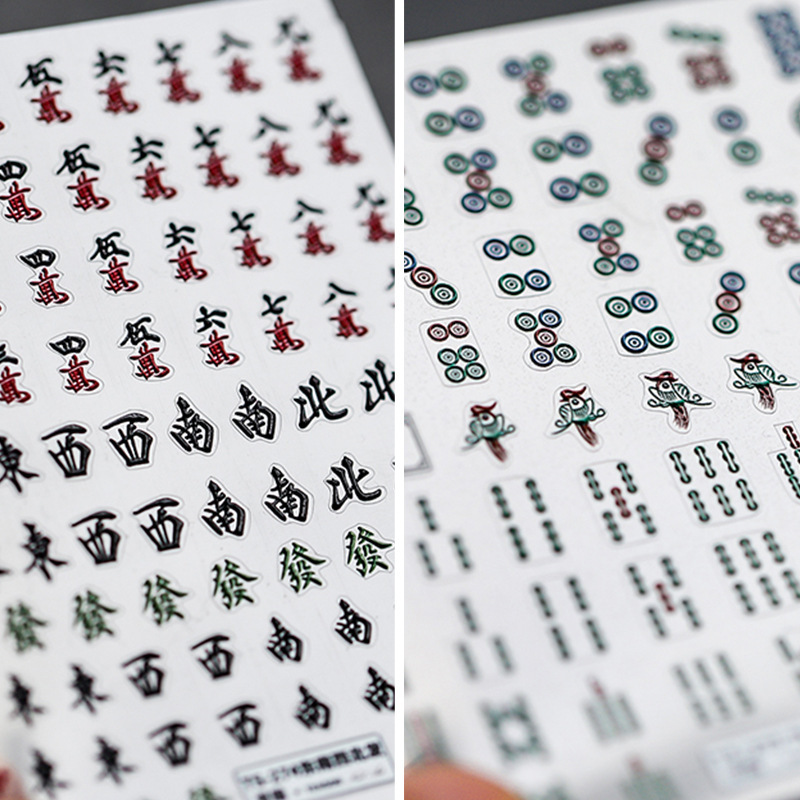 五 六 七 八 九
萬 萬 萬 萬 萬
四 五 六 七 八 九
萬 萬 萬 萬 萬 萬
四 五 六 七 八 九
萬 萬 萬 萬 萬 萬
三 四 五 六 七 八
萬 萬 萬 萬 萬 萬
東 西 西 南 南 北 北
東 西 西 南 南 北
發 發 發 發 發 發
東 東 西 西 南 南
東 東 西 西 南 南